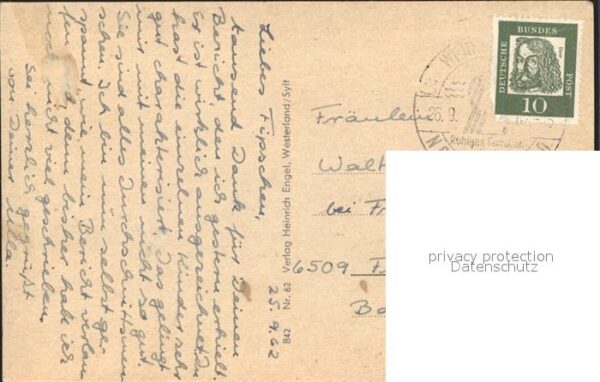 25.9.62
Liebes Fipschen,
tausend Dank für Deinen
Bericht den ich gestern erhielt.
Er ist wirklich ausgezeichnet. Du
hast die einzelnen Kinder sehr
gut charakterisiert. Das gelingt
mir mit meinen nicht so gut.
Sie sind alles Durchschnittsmen
schen. Ich bin nun selbst ge
spannt wie mein Bericht
dem bisher hab ich
noch nicht viel geschrieben.
Sei herzlich gegrüßt
von Deiner
B42 Nr. 62 Verlag Heinrich Engel, Westerland/Sylt
DEUTSCHE BUNDES POST
10
26.9.
Fräulein
Walt
bei Fr
6509
privacy protection
Datenschutz